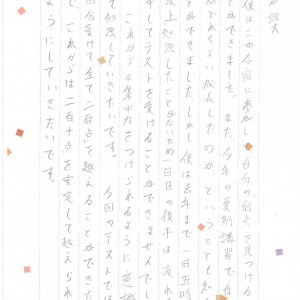 僕はこの合宿に参加し、自分の弱点を見つける
とができました。また、今年の夏期講習で自
がどれくらい成長したのか、ということも知
とができました。しかし、僕は去年まで一日五時
以上勉強したことがないため一日目の後半は疲れ
中してテストを受けることができませんでし
これからは集中力をつけられるように意識
て勉強していきたいです。 今回のテストでは
回分受けて全て二百点を越えることができた
で、これからは二百十点を安定して越えられ
ようにしていきたいです。